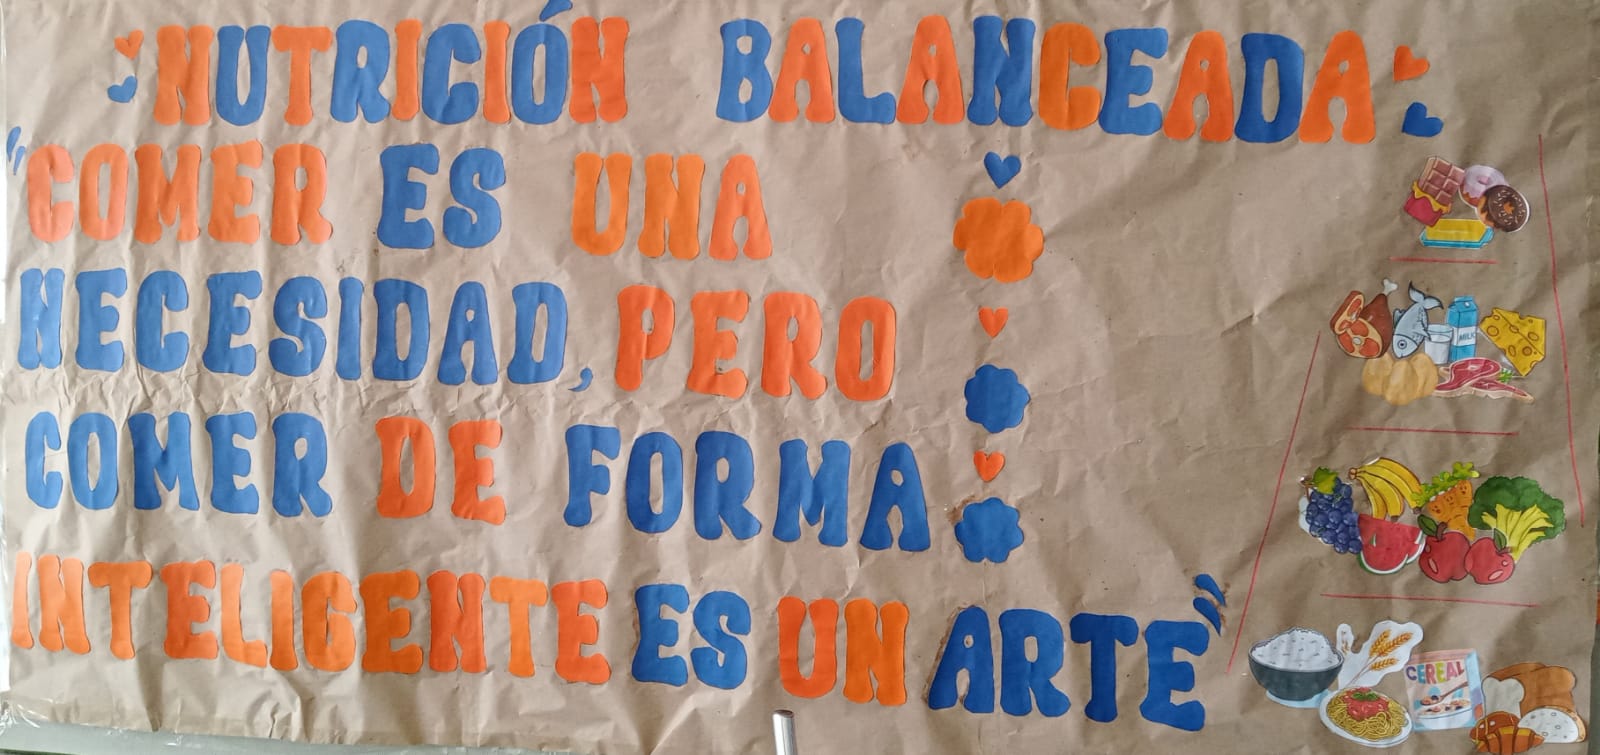 NUTRICIÓN BALANCEADA
"COMER ES UNA
NECESIDAD, PERO
COMER DE FORMA
INTELIGENTE ES UN ARTE"
MILK
CEREAL